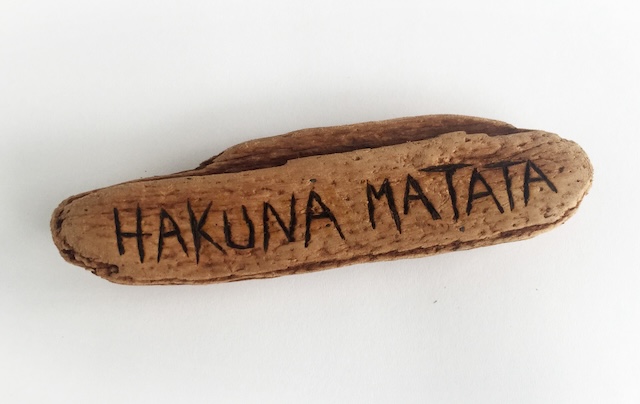 HAKUNA MATATA